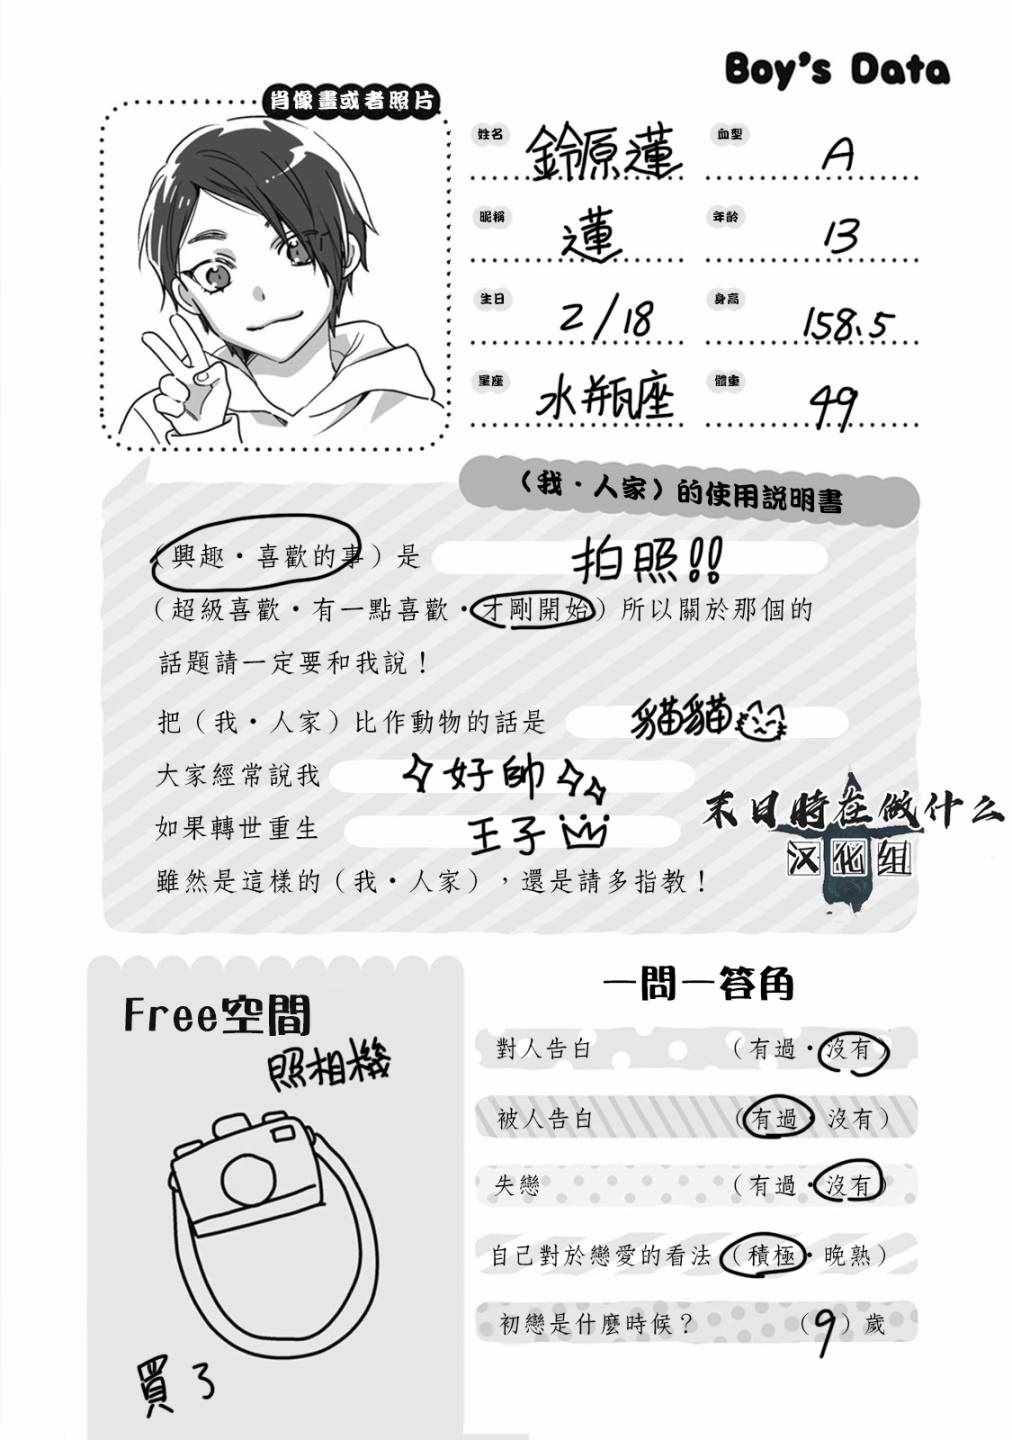 Boy's Data
肖像畫或者照片
姓名 鈴原蓮 血型 A
昵稱 蓮 年齡 13
生日 2/18 身高 158.5
星座 水瓶座 體重 49
（我・人家）的使用說明書
（興趣・喜歡的事）是 拍照!!
（超級喜歡・有一點喜歡・才剛開始）所以關於那個的
話題請一定要和我說！
把（我・人家）比作動物的話是 貓貓
大家經常說我 好帥
如果轉世重生 王子
雖然是這樣的（我・人家），還是請多指教！
末日時在做什么
汉化组
Free空間
照相機
買了
一問一答角
對人告白 （有過・沒有）
被人告白 （有過・沒有）
失戀 （有過・沒有）
自己對於戀愛的看法（積極・晚熟）
初戀是什麼時候？ （9）歲